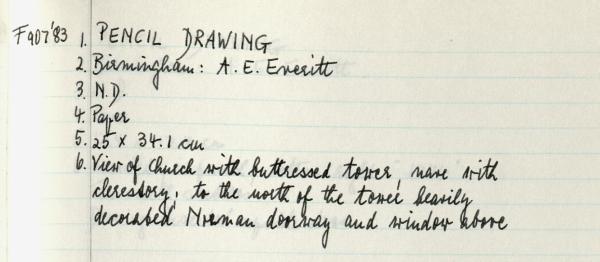 F907'83 1. PENCIL DRAWING
2. Birmingham: A. E. Everitt
3. N.D.
4. Paper
5. 25 x 34.1 cm
6. View of church with buttressed tower, nave with
clerestory, to the north of the tower heavily
decorated Norman doorway and window above